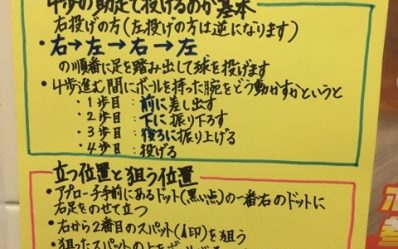 4歩の助走で投げるのが基本
右投げの方(左投げの方は逆になります)
・右→左→右→左
の順番に足を踏み出して球を投げます
・4歩進む間にボールを持った腕をどう動かすかというと
・1歩目:前に差し出す
・2歩目:下に振り下ろす
・3歩目:後ろに振り上げる
・4歩目:投げる
立つ位置と狙う位置
・アプローチ手前にあるドット(黒い点)の一番右のドットに
右足をのせて立つ
・右から2番目のスパット(▲印)を狙う
・狙ったスパットの上を